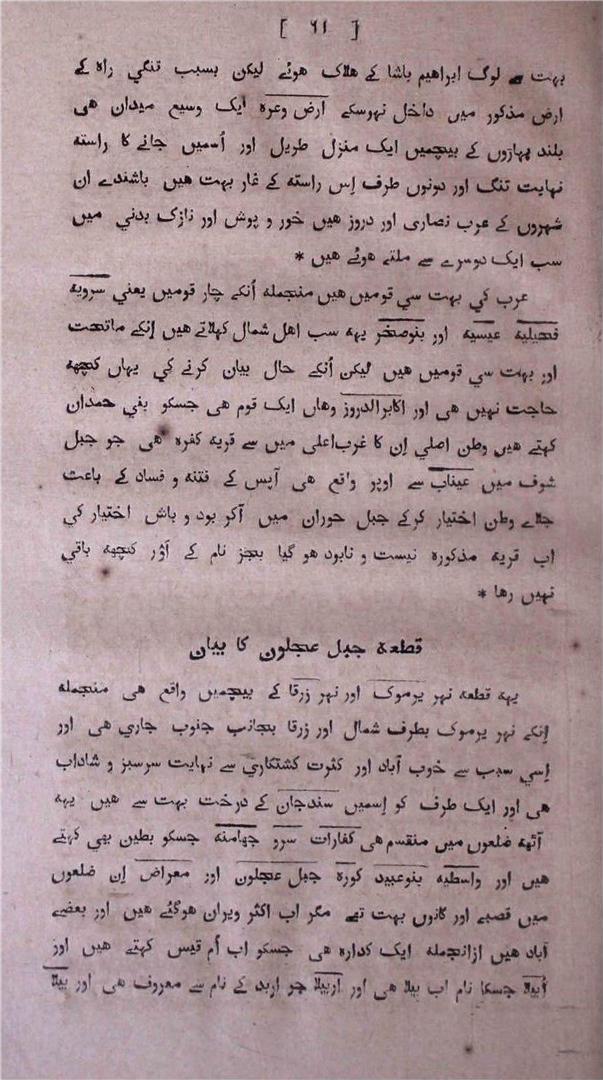 [ ٦١ ]
بہت سے لوگ ابراهیم باشا کے هلاک هوئے لیکن بسبب تنگي راہ کے
ارض مذکور میں داخل نہوسکے ارض وعرہ ایک وسیع میدان هی
بلند پہاڑوں کے بیچمیں ایک منزل طریل اور اُسمیں جانے کا راستہ
نہایت تنگ اور دونوں طرف اِس راستہ کے غار بہت هیں باشندے ان
شہروں کے عرب نصاری اور دروز هیں خور و پوش اور نازک بدني میں
سب ایک دوسرے سے ملتے هوئے هیں *
عرب کي بہت سي قومیں هیں منجملہ اُنکے چار قومیں یعني سرویہ
فحیلیہ عیسیہ اور بنوصخر یہہ سب اهل شمال کہلاتے هیں اِنکے ماتحت
اور بہت سي قومیں هیں لیکن اُنکے حال بیان کرنے کي یہاں کچھہ
حاجت نہیں هی اور اکابرالدروز وهاں ایک قوم هی جسکو بغي حمدان
کہتے هیں وطن اصلي اِن کا غرب اعلی میں سے قریہ کفرہ هی جو جبل
شوف میں عیناب سے اوپر واقع هی آپس کے فتنہ و فساد کے باعث
جلاے وطن اختیار کرکے جبل حوران میں آکر بود و باش اختیار کي
اب قریہ مذکورہ نیست و نابود هو گیا بجز نام کے آؤر کچھہ باقي
نہیں رها *
قطعہ جبل عجلون کا بیان
یہہ قطعہ نہر یرموک اور نہر زرقا کے بیچمیں واقع هی منجملہ
اِنکے نہر یرموک بطرف شمال اور زرقا بجانب جنوب جاري هی اور
اِسي سبب سے خوب آباد اور کثرت کشتکاري سے نہایت سرسبز و شاداب
هی اور ایک طرف کو اِسمیں سندجان کے درخت بہت سے هیں یہہ
آٹھہ ضلعوں میں منقسم هی کفارات سرو جهامنہ جسکو بطین بهی کہتے
هیں اور واسطیہ بنوعبید کورہ جبل عجلون اور معراض اِن ضلعوں
میں قصبے اور گانوں بہت تهے مگر اب اکثر ویران هوگئے هیں اور بعضے
آباد هیں ازانجملہ ایک کدارہ هی جسکو اب اُم قیس کہتے هیں اور
اُبیلا جسکا نام اب بیلا هی اور اربیلا جو اربد کے نام سے معروف هی اور بیلا